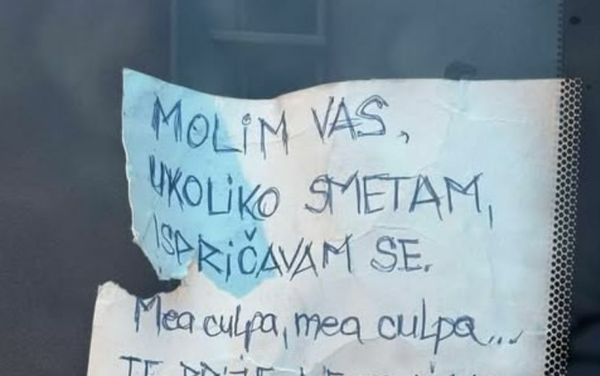 MOLIM VAS,
UKOLIKO SMETAM,
ISPRIČAVAM SE.
Mea culpa, mea culpa...